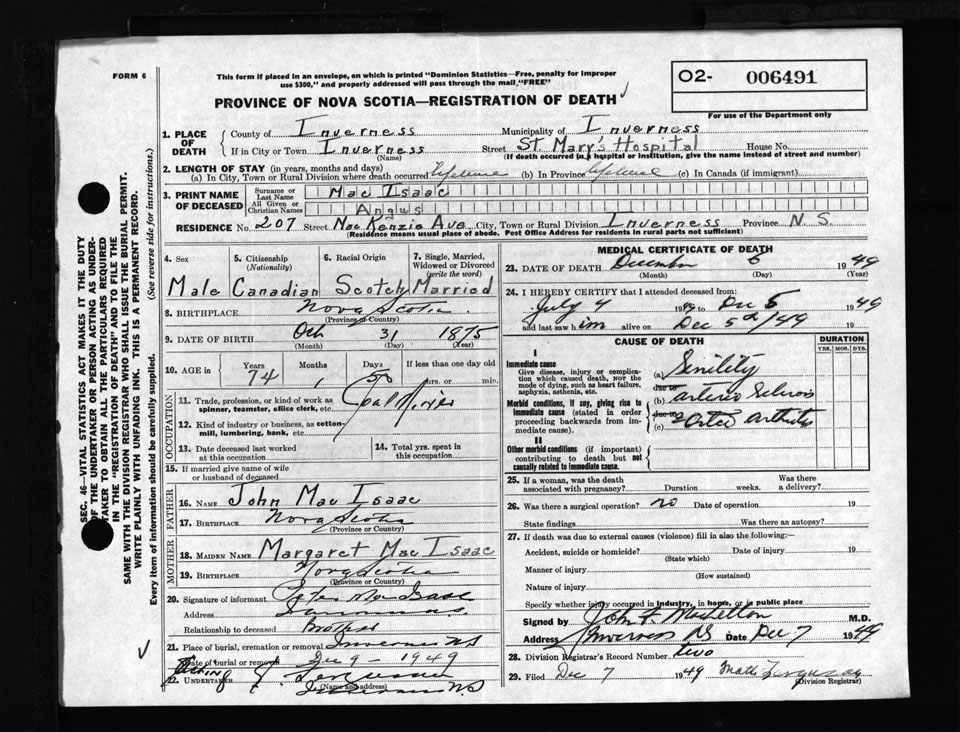 FORM 6
This form if placed in an envelope, on which is printed "Dominion Statistics—Free, penalty for improper
use $300," and properly addressed will pass through the mail "FREE"
PROVINCE OF NOVA SCOTIA—REGISTRATION OF DEATH
O2- 006491
For use of the Department only
1. PLACE OF DEATH
County of Inverness Municipality of Inverness
If in City or Town Inverness Street St Mary's Hospital House No.
(Name) (If death occurred in a hospital or institution, give the name instead of street and number)
2. LENGTH OF STAY (in years, months and days)
(a) In City, Town or Rural Division where death occurred lifetime (b) In Province lifetime (c) In Canada (if immigrant)
3. PRINT NAME OF DECEASED
Surname or Last Name Mac Isaac
All Given or Christian Names Angus
RESIDENCE No. 207 Street Mac Kenzie Ave City, Town or Rural Division Inverness Province N.S.
(Residence means usual place of abode. Post Office Address for residents in rural parts not sufficient)
4. Sex 5. Citizenship (Nationality) 6. Racial Origin 7. Single, Married, Widowed or Divorced (write the word)
Male Canadian Scotch Married
8. BIRTHPLACE Nova Scotia
(Province or Country)
9. DATE OF BIRTH Oct 31 1875
(Month) (Day) (Year)
10. AGE in Years Months Days If less than one day old
74 1 hrs. or min.
OCCUPATION
11. Trade, profession, or kind of work as spinner, teamster, office clerk, etc. Coal Miner
12. Kind of industry or business, as cotton-mill, lumbering, bank, etc.
13. Date deceased last worked at this occupation
14. Total yrs. spent in this occupation
15. If married give name of wife or husband of deceased
FATHER
16. NAME John Mac Isaac
17. BIRTHPLACE Nova Scotia
(Province or Country)
MOTHER
18. MAIDEN NAME Margaret Mac Isaac
19. BIRTHPLACE Nova Scotia
(Province or Country)
20. Signature of informant Peter MacIsaac
Address Inverness
Relationship to deceased Brother
21. Place of burial, cremation or removal Inverness NS
Date of burial or removal Dec 9 - 1949
22. UNDERTAKER J. Ferguson
(Name and address)
Inverness N.S
MEDICAL CERTIFICATE OF DEATH
23. DATE OF DEATH December 6 1949
(Month) (Day) (Year)
24. I HEREBY CERTIFY that I attended deceased from:
July 4 1949 to Dec 5 1949
and last saw him alive on Dec 5th/49 19
CAUSE OF DEATH
DURATION
YRS. MOS. DYS.
I
Immediate cause
Give disease, injury or complication which caused death, NOT the mode of dying, such as heart failure, asphyxia, asthenia, etc.
(a) Senility
due to
Morbid conditions, if any, giving rise to immediate cause (stated in order proceeding backwards from immediate cause).
(b) arterio Sclerosis
due to
(c) Osteo arthritis
II
Other morbid conditions (if important) contributing to death but not causally related to immediate cause.
25. If a woman, was the death associated with pregnancy? Duration weeks. Was there a delivery?
26. Was there a surgical operation? no Date of operation 19
State findings Was there an autopsy?
27. If death was due to external causes (violence) fill in also the following:—
Accident, suicide or homicide? Date of injury 19
(State which)
Manner of injury
(How sustained)
Nature of injury
Specify whether injury occurred in industry, in home, or in public place
Signed by John F. M.D.
Address Inverness NS Date Dec 7 1949
28. Division Registrar's Record Number two
29. Filed Dec 7 1949
(Division Registrar)
SEC. 46—VITAL STATISTICS ACT MAKES IT THE DUTY
OF THE UNDERTAKER OR PERSON ACTING AS UNDER-
TAKER TO OBTAIN ALL THE PARTICULARS REQUIRED
IN THE "REGISTRATION OF DEATH" AND TO FILE THE
SAME WITH THE DIVISION REGISTRAR WHO SHALL ISSUE THE BURIAL PERMIT.
WRITE PLAINLY WITH UNFADING INK. THIS IS A PERMANENT RECORD.
Every item of information should be carefully supplied. (See reverse side for instructions.)